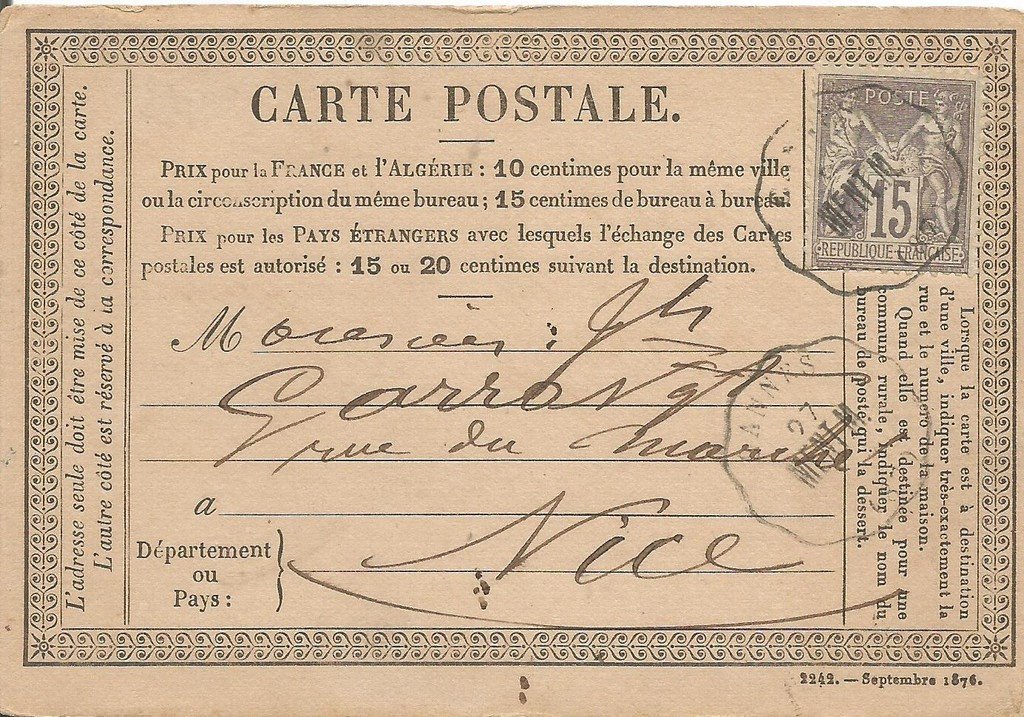 CARTE POSTALE.
PRIX pour la FRANCE et l'ALGÉRIE : 10 centimes pour la même ville
ou la circonscription du même bureau ; 15 centimes de bureau à bureau.
PRIX pour les PAYS ÉTRANGERS avec lesquels l'échange des Cartes
postales est autorisé : 15 ou 20 centimes suivant la destination.
L'adresse seule doit être mise de ce côté de la carte.
L'autre côté est réservé à la correspondance.
POSTE
15
REPUBLIQUE FRANÇAISE
MENT
M
rue du marché
a Nice
Département
ou
Pays :
MENT
Lorsque la carte est à destination
d'une ville, indiquer très-exactement la
rue et le numéro de la maison.
Quand elle est destinée pour une
commune rurale, indiquer le nom du
bureau de poste qui la dessert.
2242. — Septembre 1876.